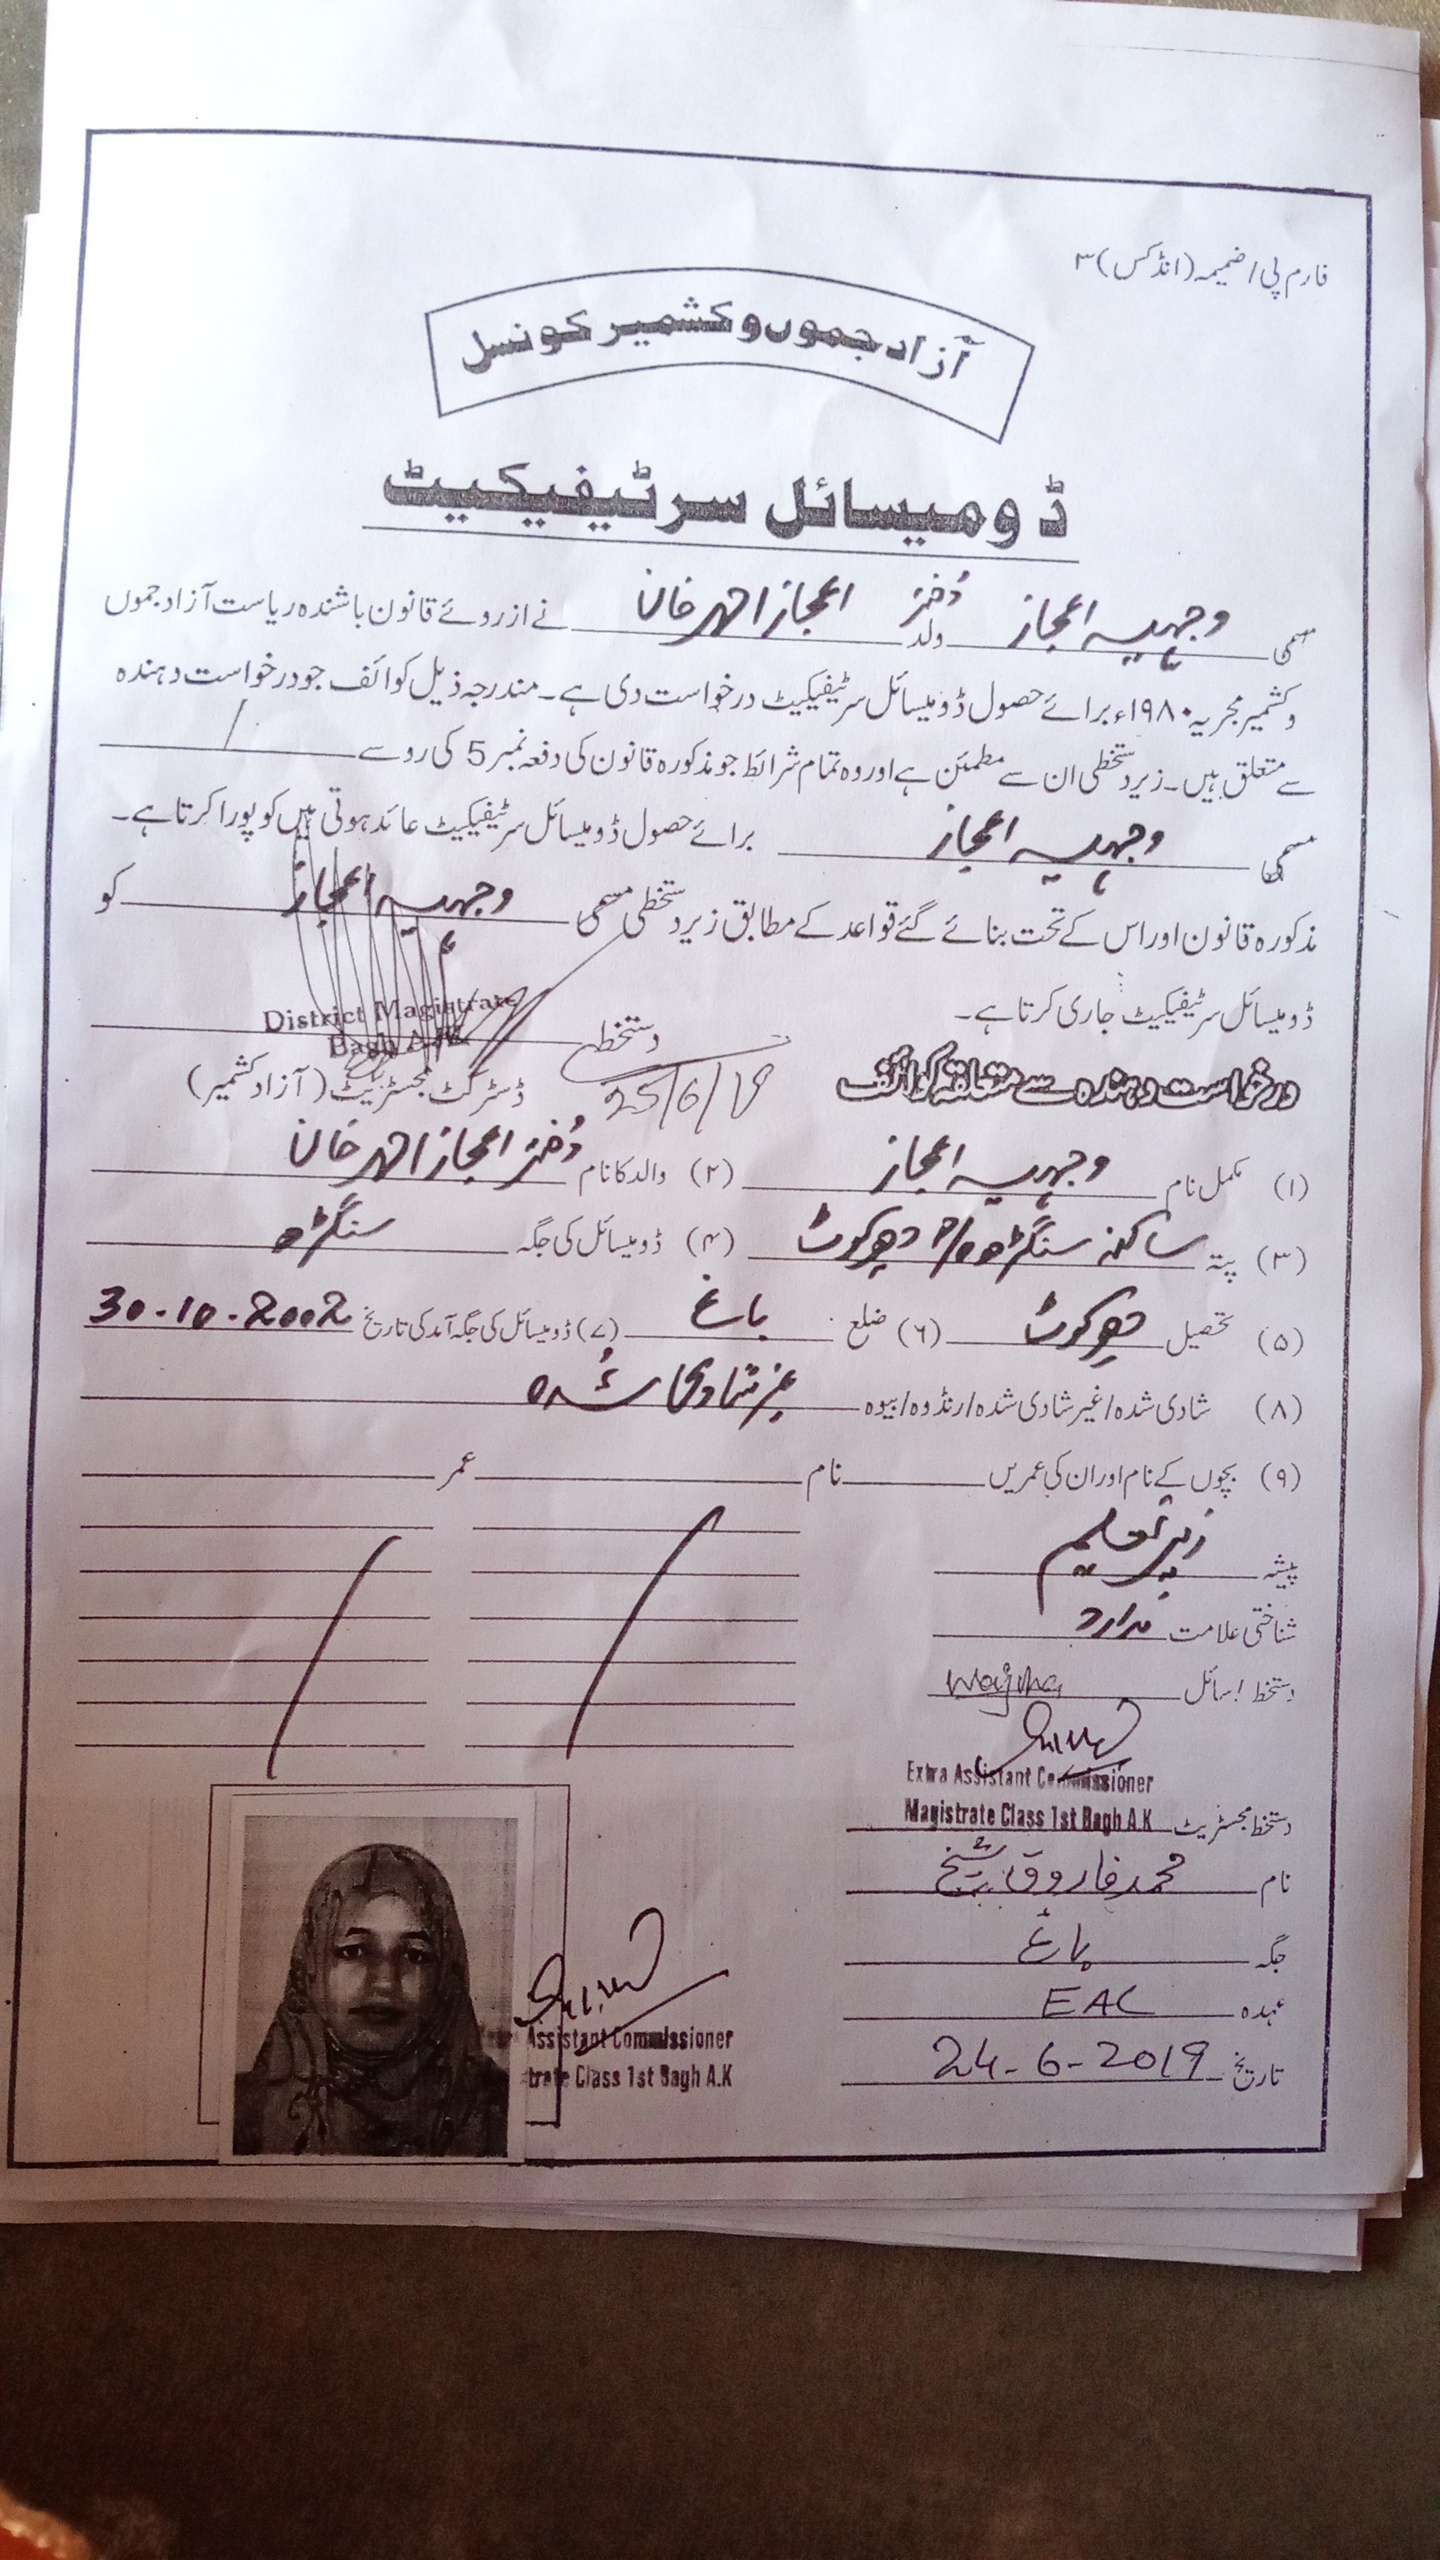 فارم پی/ضمیمہ (انڈکس) ۳
آزاد جموں و کشمیر کونسل
ڈومیسائل سرٹیفیکیٹ
مسمی وجہیہ اعجاز ولد دختر اعجاز احمد خان نے ازروئے قانون باشندہ ریاست آزاد جموں
وکشمیر مجریہ ۱۹۸۰ء برائے حصول ڈومیسائل سرٹیفیکیٹ درخواست دی ہے۔ مندرجہ ذیل کوائف جو درخواست دہندہ
سے متعلق ہیں۔ زیر دستخطی ان سے مطمئن ہے اور وہ تمام شرائط جو مذکورہ قانون کی دفعہ نمبر 5 کی رو سے /
مسمی وجہیہ اعجاز برائے حصول ڈومیسائل سرٹیفیکیٹ عائد ہوتی ہیں کو پورا کرتا ہے۔
مذکورہ قانون اور اس کے تحت بنائے گئے قواعد کے مطابق زیر دستخطی مسمی وجہیہ اعجاز کو
ڈومیسائل سرٹیفیکیٹ جاری کرتا ہے۔
District Magistrate
Bagh A.K
دستخط
ڈسٹرکٹ مجسٹریٹ (آزاد کشمیر)
25/6/19
درخواست دہندہ سے متعلقہ کوائف
(۱) مکمل نام وجہیہ اعجاز (۲) والد کا نام دختر اعجاز احمد خان
(۳) پتہ ساکنہ سنگڑھ دھیرکوٹ (۴) ڈومیسائل کی جگہ سنگڑھ
(۵) تحصیل دھیرکوٹ (۶) ضلع باغ (۷) ڈومیسائل کی جگہ آمد کی تاریخ 30-10-2002
(۸) شادی شدہ/غیر شادی شدہ/رنڈوہ/بیوہ غیر شادی شدہ
(۹) بچوں کے نام اور ان کی عمریں نام عمر
پیشہ زیر تعلیم
شناختی علامت ندارد
دستخط/سائل Wajiha
Extra Assistant Commissioner
Magistrate Class 1st Bagh A.K
دستخط مجسٹریٹ
نام محمد فاروق شیخ
جگہ باغ
عہدہ EAC
تاریخ 24-6-2019
Assistant Commissioner
trate Class 1st Bagh A.K